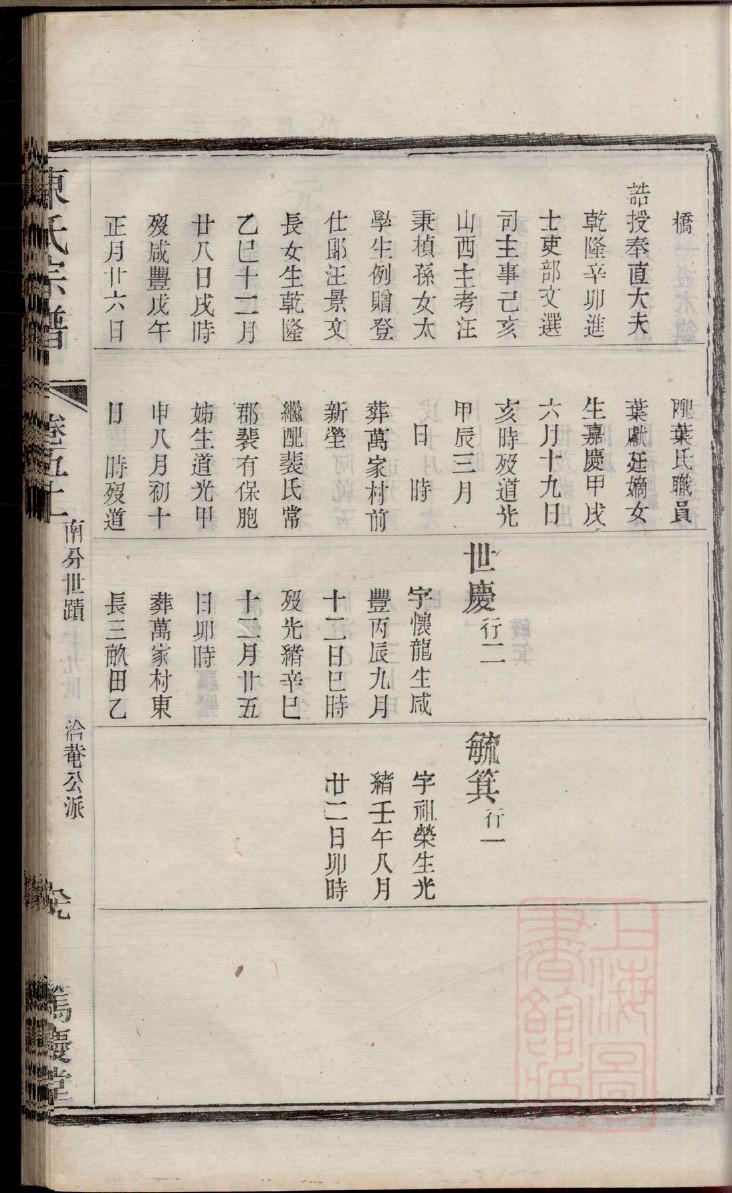 橋
誥授奉直大夫
乾隆辛卯進
士吏部文選
司主事己亥
山西主考汪
秉楨孫女太
學生例贈登
仕郎汪景文
長女生乾隆
乙巳十二月
廿八日戌時
歿咸豐戊午
正月廿六日
配葉氏職員
葉獻廷嫡女
生嘉慶甲戌
六月十九日
亥時歿道光
甲辰三月
日　時
葬萬家村前
新塋
繼配裴氏常
郡裴有保胞
姊生道光甲
申八月初十
日　時歿道
世慶行二
字懷龍生咸
豐丙辰九月
十二日巳時
歿光緒辛巳
十二月廿五
日卯時
葬萬家村東
長三畝田乙
毓箕行一
字祖榮生光
緒壬午八月
廿二日卯時
氏宗譜
卷五上
南分世蹟
洽菴公派
篤慶堂
上海圖書館藏